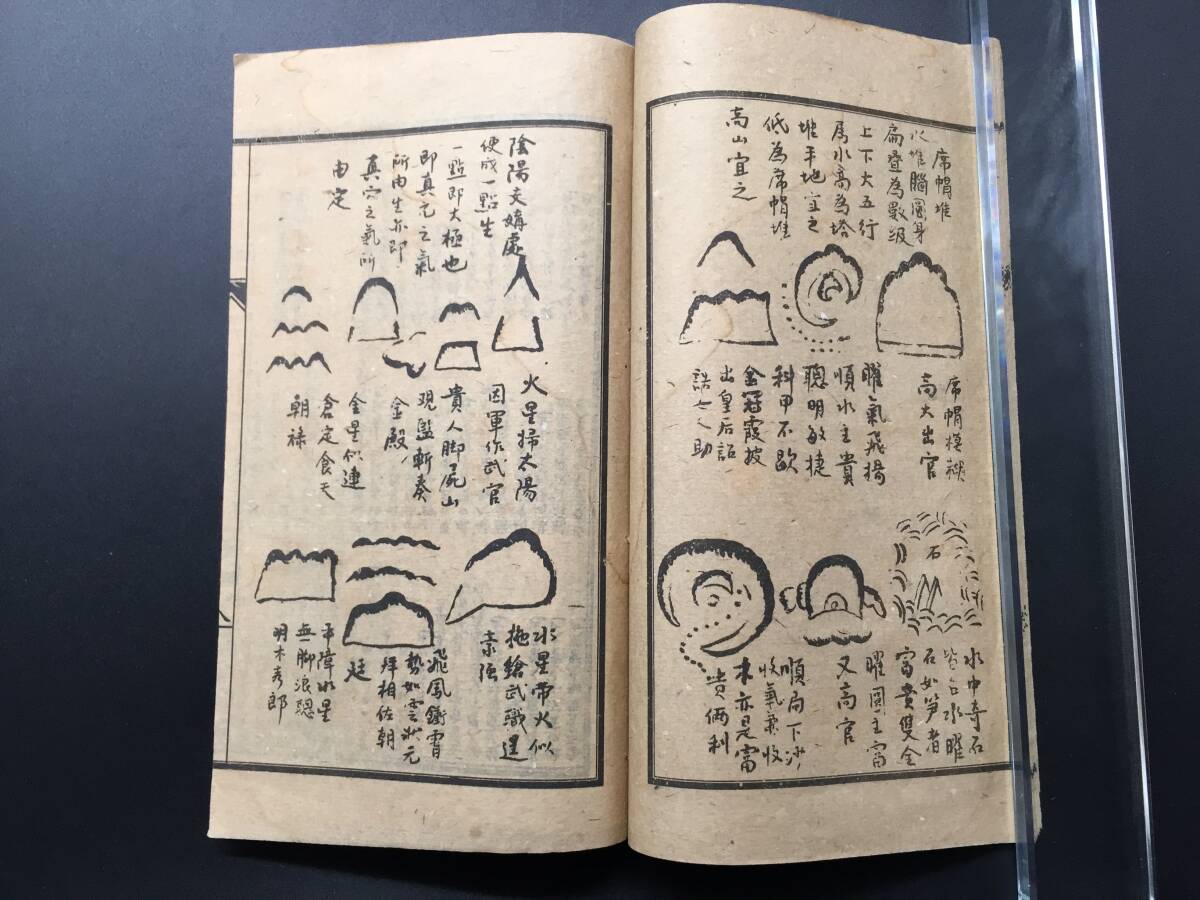 席帽堆
以堆腦圓身
扁疊為數级
上下大五行
屬水高為塔
堆平地宜之
低為席帽堆
高山宜之
席帽模糊
高大出官
曜氣飛揚
順水主貴
聰明敏捷
科甲不歇
金冠霞披
出皇后詔
誥之助
石
水中奇石
皆台水曜
石如笋者
富貴雙全
曜圓主富
又高官
順局下沙
收氣兼收
木亦是富
貴倆利
陰陽交媾處
便成一點生
一點即太極也
即真元之氣
所由生亦即
真穴之氣所
由定
火星掃太陽
因軍作武官
貴人脚屍山
現監斬奏
金殿
金星似連
倉定食天
朝祿
水星帶火似
拖鎗武職逞
豪强
飛鳳衝霄
勢如雲状元
拜相佐朝
廷
平障水星
無脚浪
羽木秀郎